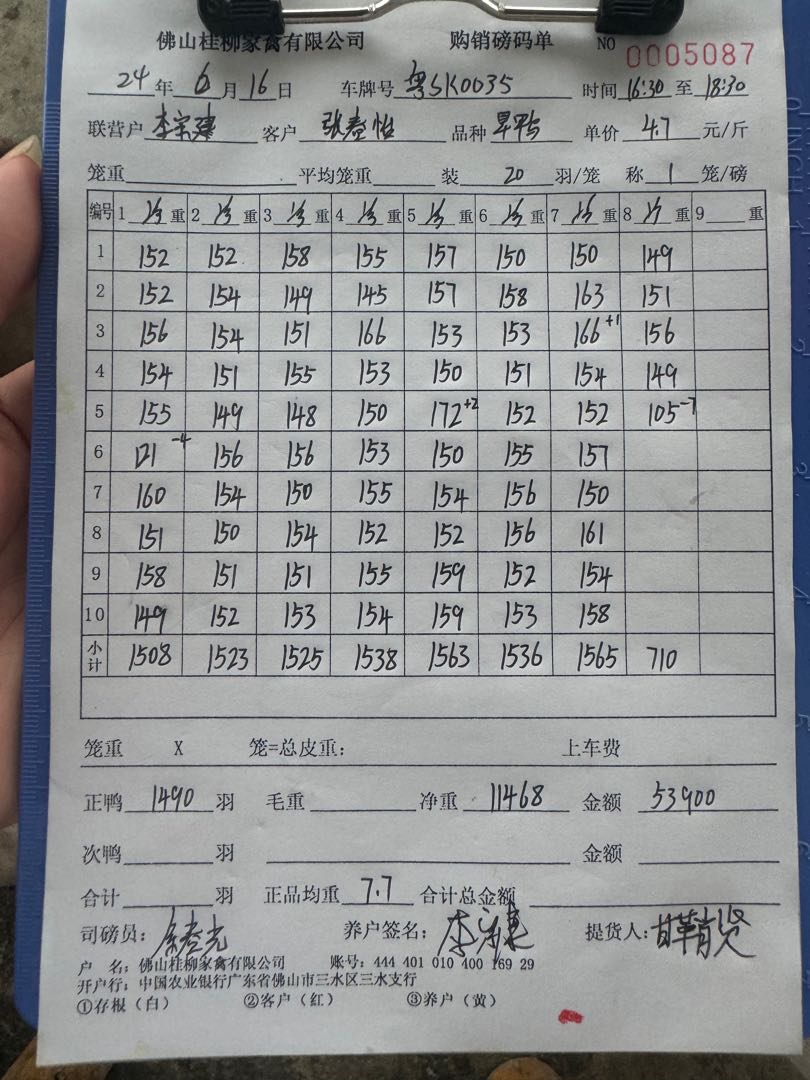 佛山桂柳家禽有限公司 购销磅码单 NO 0005087
24年6月16日 车牌号 粤SK0035 时间 16:30 至 18:30
联营户 客户 张春怡 品种 旱鸭 单价 4.7 元/斤
笼重 平均笼重 装 20 羽/笼 称 1 笼/磅
编号 1 重 2 重 3 重 4 重 5 重 6 重 7 重 8 重 9 重
1 152 152 158 155 157 150 150 149
2 152 154 149 145 157 158 163 151
3 156 154 151 166 153 153 166+1 156
4 154 151 155 153 150 151 154 149
5 155 149 148 150 172+2 152 152 105-7
6 121-4 156 156 153 150 155 157
7 160 154 150 155 154 156 150
8 151 150 154 152 152 156 161
9 158 151 151 155 159 152 154
10 149 152 153 154 159 153 158
小计 1508 1523 1525 1538 1563 1536 1565 710
笼重 X 笼=总皮重: 上车费
正鸭 1490 羽 毛重 净重 11468 金额 53900
次鸭 羽 金额
合计 羽 正品均重 7.7 合计总金额
司磅员: 养户签名: 提货人:
户 名: 佛山桂柳家禽有限公司 账号: 444 401 010 400 169 29
开户行: 中国农业银行广东省佛山市三水区三水支行
①存根(白) ②客户(红) ③养户(黄)